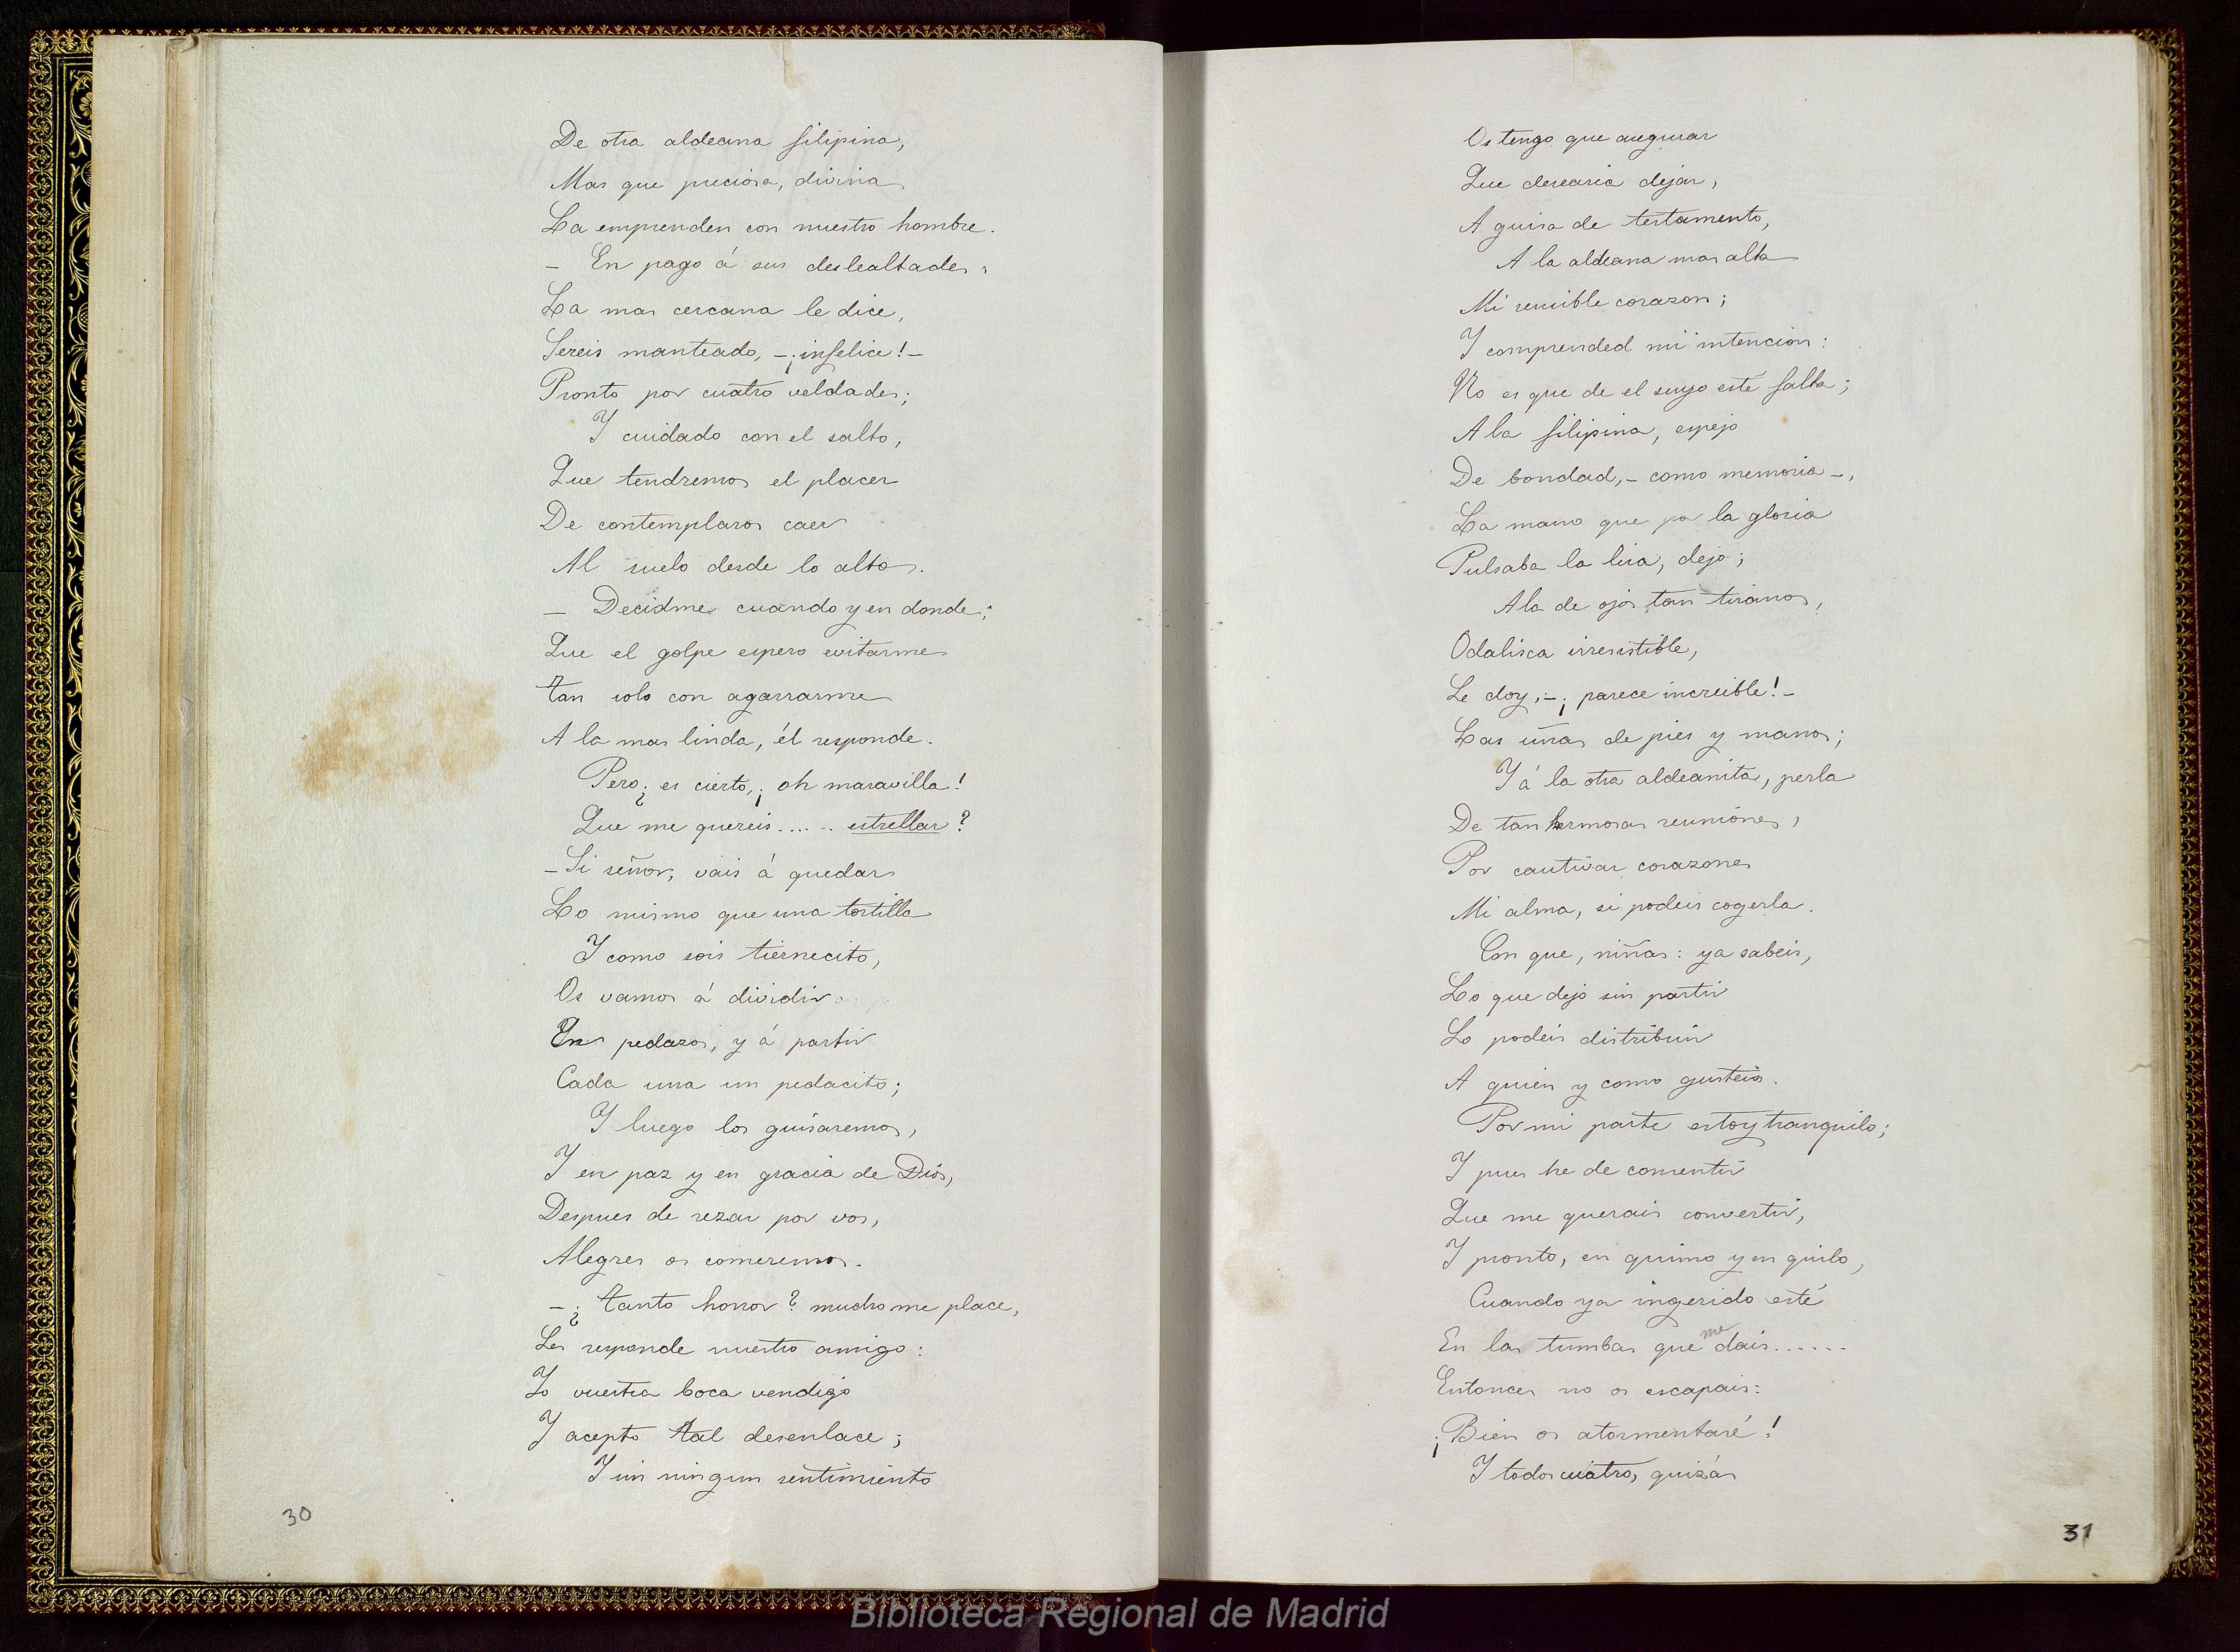 De otra aldeana filipina,
Mas que preciosa, divina
La emprenden con nuestro hombre.
- En pago á sus deslealtades,
La mas cercana le dice,
Sereis manteado, -¡infelice!-
Pronto por cuatro veldades;
Y cuidado con el salto,
Que tendremos el placer
De contemplaros caer
Al suelo desde lo alto.
- Decidme cuando y en donde;
Que el golpe espero evitarme
tan solo con agarrarme
A la mas linda, él responde.
Pero ¿es cierto, ¡oh maravilla!
Que me quereis...... estrellar?
- Si señor, vais á quedar
Lo mismo que una tortilla
Y como sois tiernecito,
Os vamos á dividir
En pedazos, y á partir
Cada una un pedacito;
Y luego los guisaremos,
Y en paz y en gracia de Dios,
Despues de rezar por vos,
Alegres os comeremos.
- ¿tanto honor? mucho me place,
Les responde nuestro amigo:
Yo vuestra boca vendigo
Y acepto tal desenlace;
Y sin ningun sentimiento
30
Os tengo que asegurar
Que desearia dejar,
A guisa de testamento,
A la aldeana mas alta
Mi sensible corazon;
Y comprended mi intencion:
No es que de el suyo esté falta;
A la filipina, espejo
De bondad, - como memoria -,
La mano que por la gloria
Pulsaba la lira, dejo;
A la de ojos tan tiranos,
Odalisca irresistible,
Le doy, -¡parece increible!-
Las uñas de pies y manos;
Y á la otra aldeanita, perla
De tan hermosas reuniones,
Por cautivar corazones
Mi alma, si podeis cogerla.
Con que, niñas: ya sabeis,
Lo que dejo sin partir
Lo podeis distribuir
A quien y como gusteis.
Por mi parte estoy tranquilo;
Y pues he de consentir
Que me querais convertir,
Y pronto, en quimo y en quilo,
Cuando ya ingerido esté
En las tumbas que me dais......
Entonces no os escapais:
¡Bien os atormentaré!
Y todos cuatro, quizás
31
Biblioteca Regional de Madrid